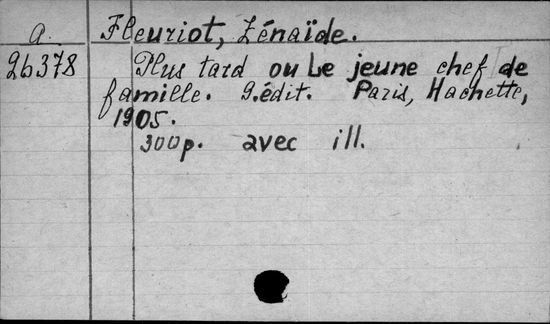 a. Fleuriot, Zénaïde.
26378 Plus tard ou Le jeune chef de
famille. 9.édit. Paris, Hachette,
1905.
300p. avec ill.